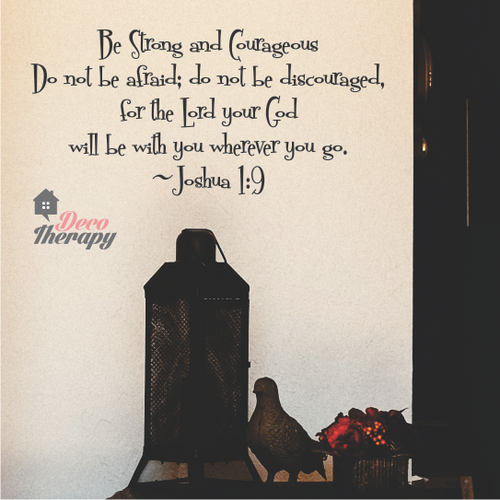 Be Strong and Courageous
Do not be afraid; do not be discouraged,
for the Lord your God
will be with you wherever you go.
~Joshua 1:9
Deco
Therapy